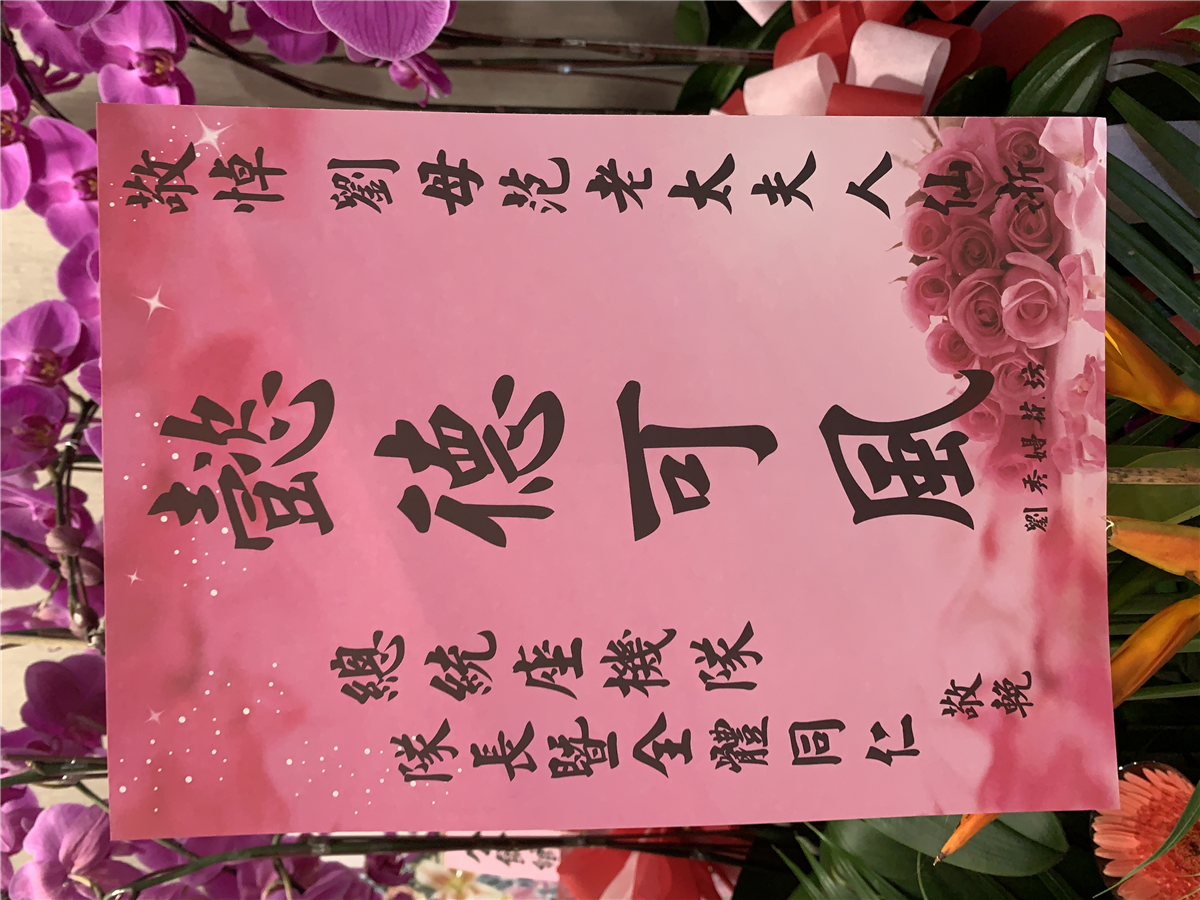 敬悼 劉母范老太夫人 仙
懿德可風
總統座機隊
隊長暨全體同仁
敬輓
劉秀嫚